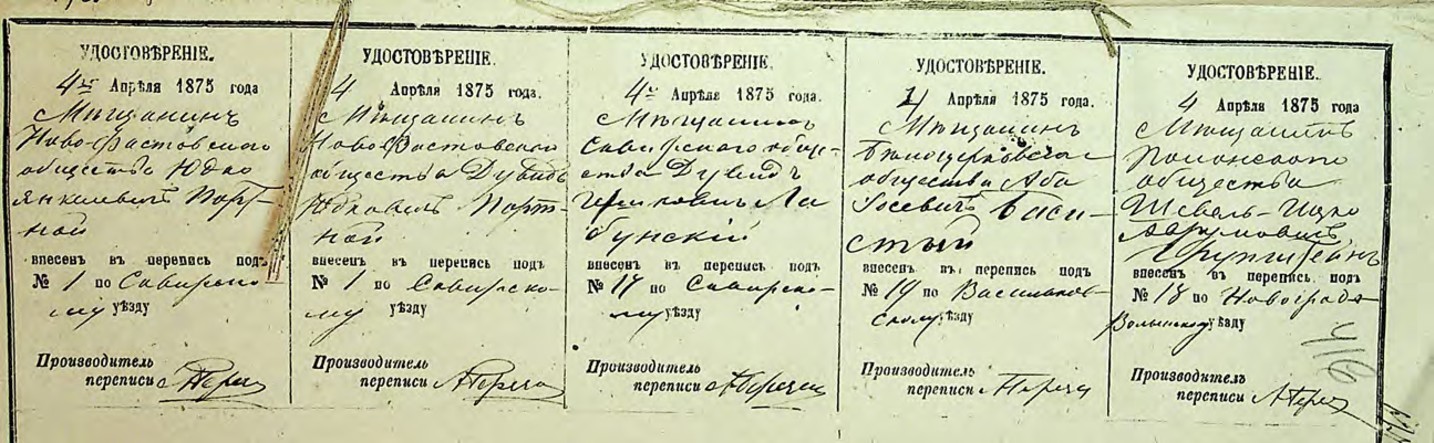 УДОСТОВѢРЕНІЕ.
4го Апрѣля 1875 года
Мѣщанинъ
Ново-Фастовскаго
общества Юдко
Янкелевичъ Порт-
ной
внесенъ въ перепись подъ
№ 1 по Сквирско-
му уѣзду
Производитель
переписи
УДОСТОВѢРЕНІЕ.
4 Апрѣля 1875 года.
Мѣщанинъ
Ново-Фастовскаго
общества Дувидъ
Юдковичъ Порт-
ной
внесенъ въ перепись подъ
№ 1 по Сквирско-
му уѣзду
Производитель
переписи
УДОСТОВѢРЕНІЕ.
4го Апрѣля 1875 года.
Мѣщанинъ
Сквирскаго обще-
ства Дувидъ
Гершковичъ Ла-
бунскій
внесенъ въ перепись подъ
№ 17 по Сквирско-
му уѣзду
Производитель
переписи
УДОСТОВѢРЕНІЕ.
4 Апрѣля 1875 года.
Мѣщанинъ
Бѣлоцерковскаго
общества Аба
Іосевичъ
внесенъ въ перепись подъ
№ 19 по Васильков-
скому уѣзду
Производитель
переписи
УДОСТОВѢРЕНІЕ.
4 Апрѣля 1875 года
Мѣщанинъ
Полонскаго
общества
Шевель-Ицко
Аврумовичъ
внесенъ въ перепись подъ
№ 18 по Новоградъ-
Волынскому уѣзду
Производитель
переписи